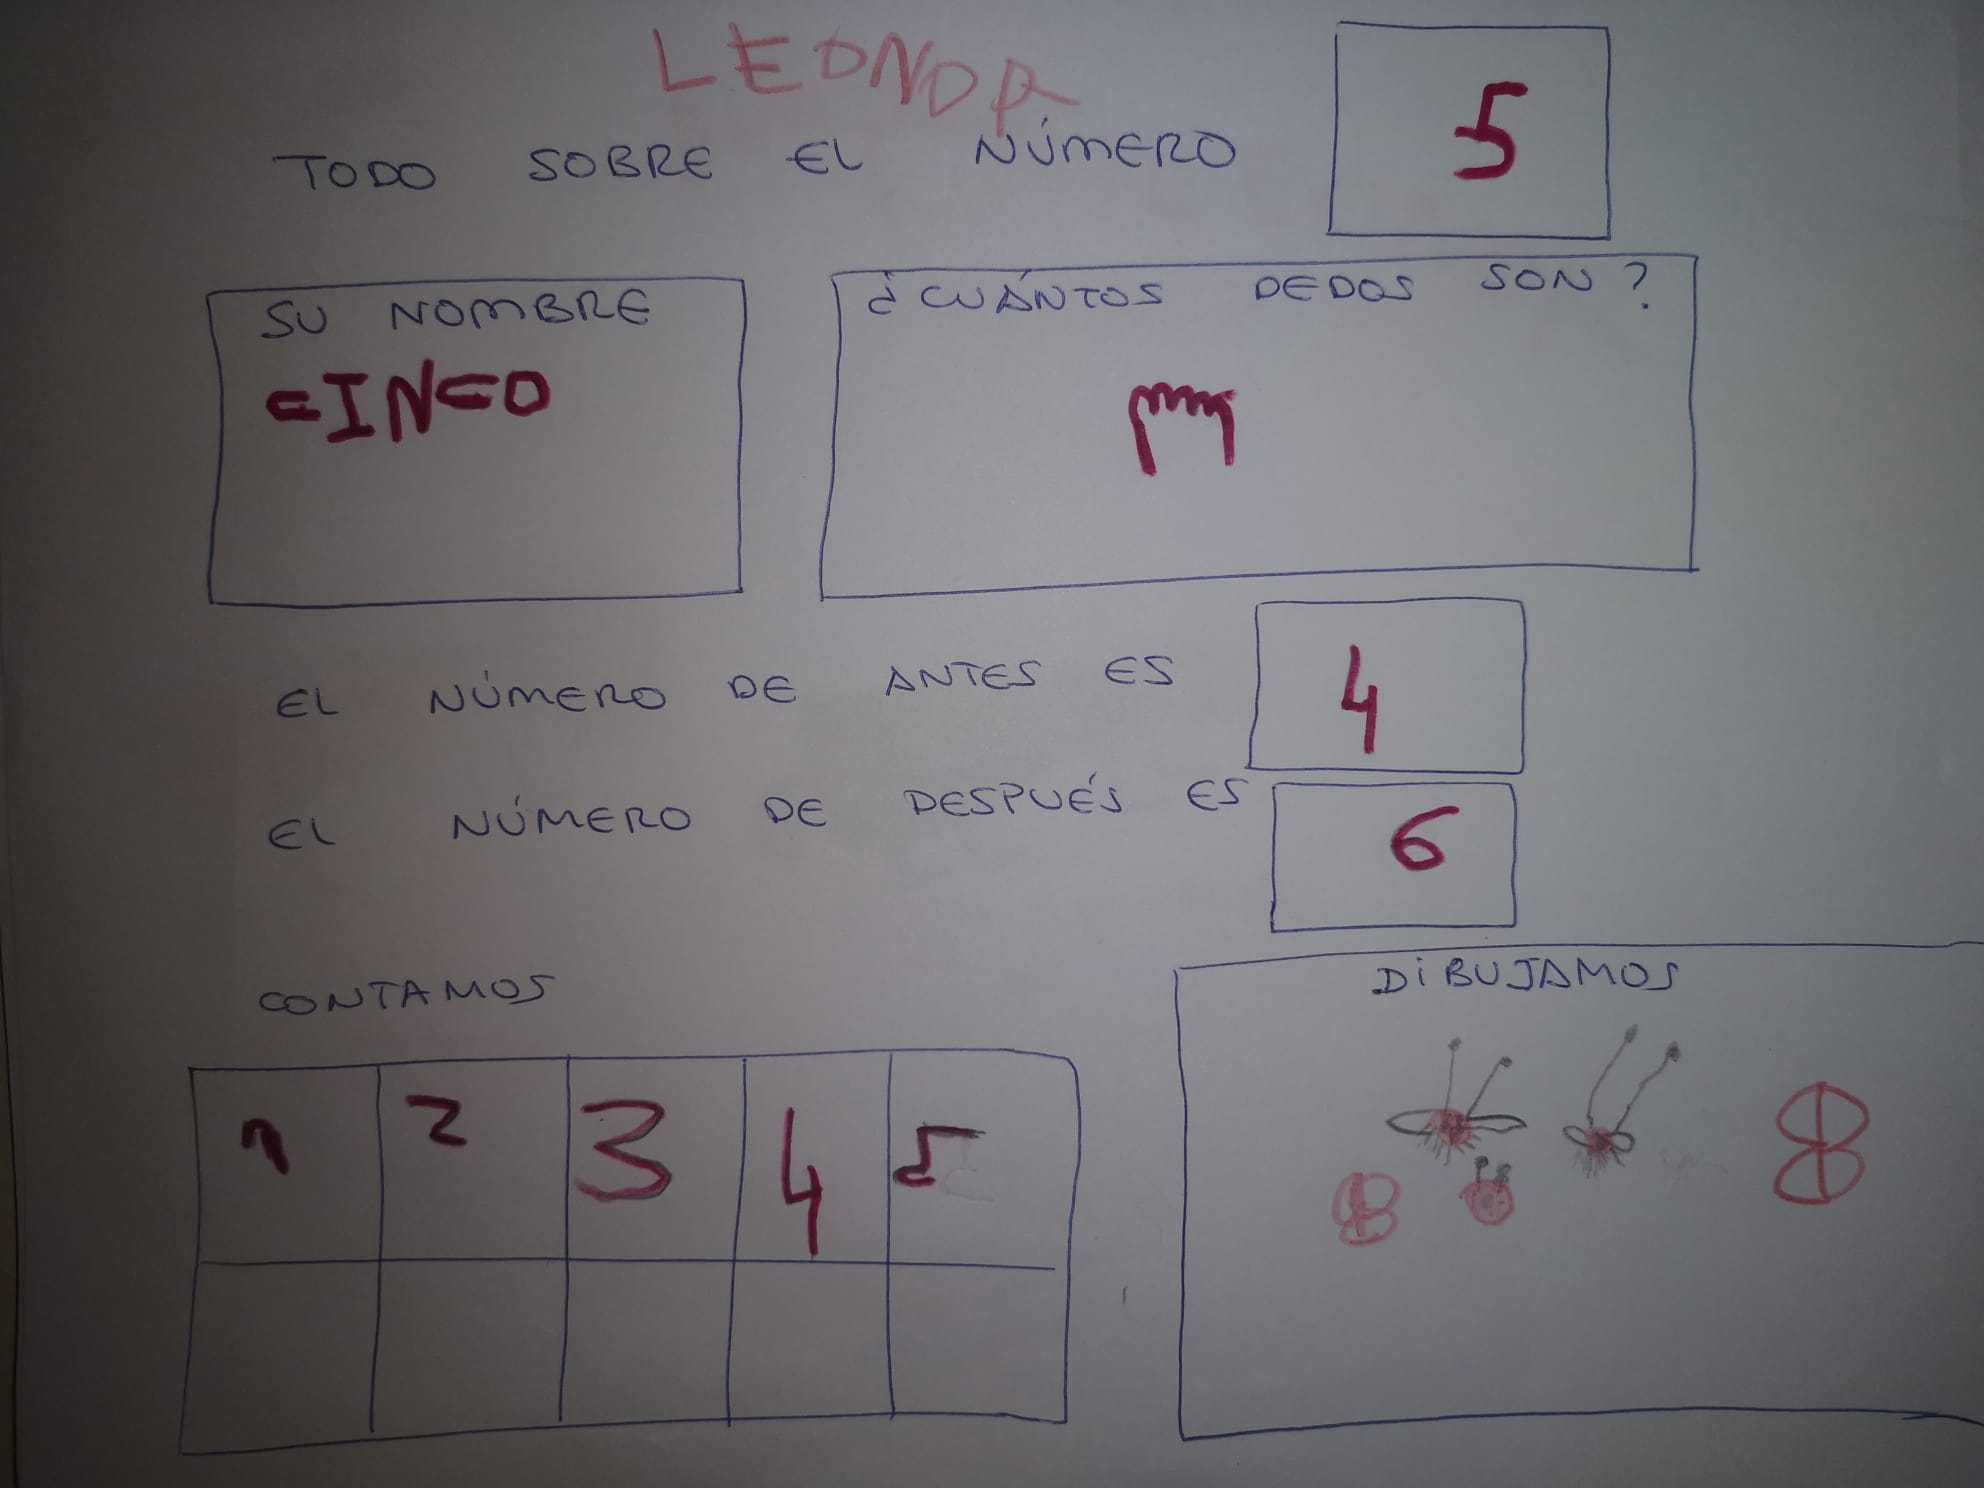 LEONOR
TODO SOBRE EL NÚMERO 5
SU NOMBRE
CINCO
¿CUÁNTOS DEDOS SON?
EL NÚMERO DE ANTES ES 4
EL NÚMERO DE DESPUÉS ES 6
CONTAMOS
1 2 3 4 5
DIBUJAMOS